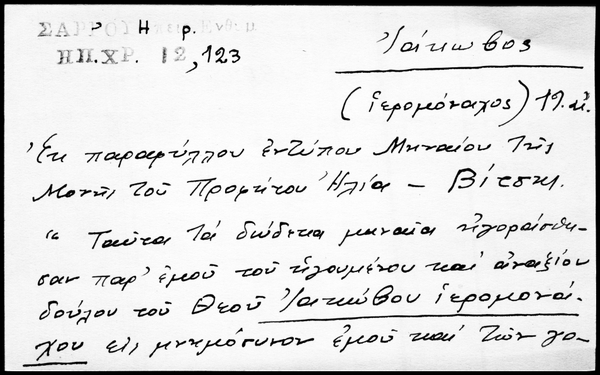 ΣΑΡΡΟΥ
Η ρ.
ΗΠ.ΧΡ. 12, 123
Ἰάκωβος
(ἱερομόναχος) 19. αἰ.
Ἐκ παραφύλλου ἐντύπου Μηναίου τῆς
Μονῆς τοῦ Προφήτου Ἠλία – Βίτσης.
" Ταῦτα τά δώδεκα μηναῖα ἠγοράσθη-
σαν παρ' ἐμοῦ τοῦ ἡγουμένου καί ἀναξίου
δούλου τοῦ Θεοῦ Ἰακώβου ἱερομονά-
χου εἰς μνημόσυνον ἐμοῦ καί τῶν γο-